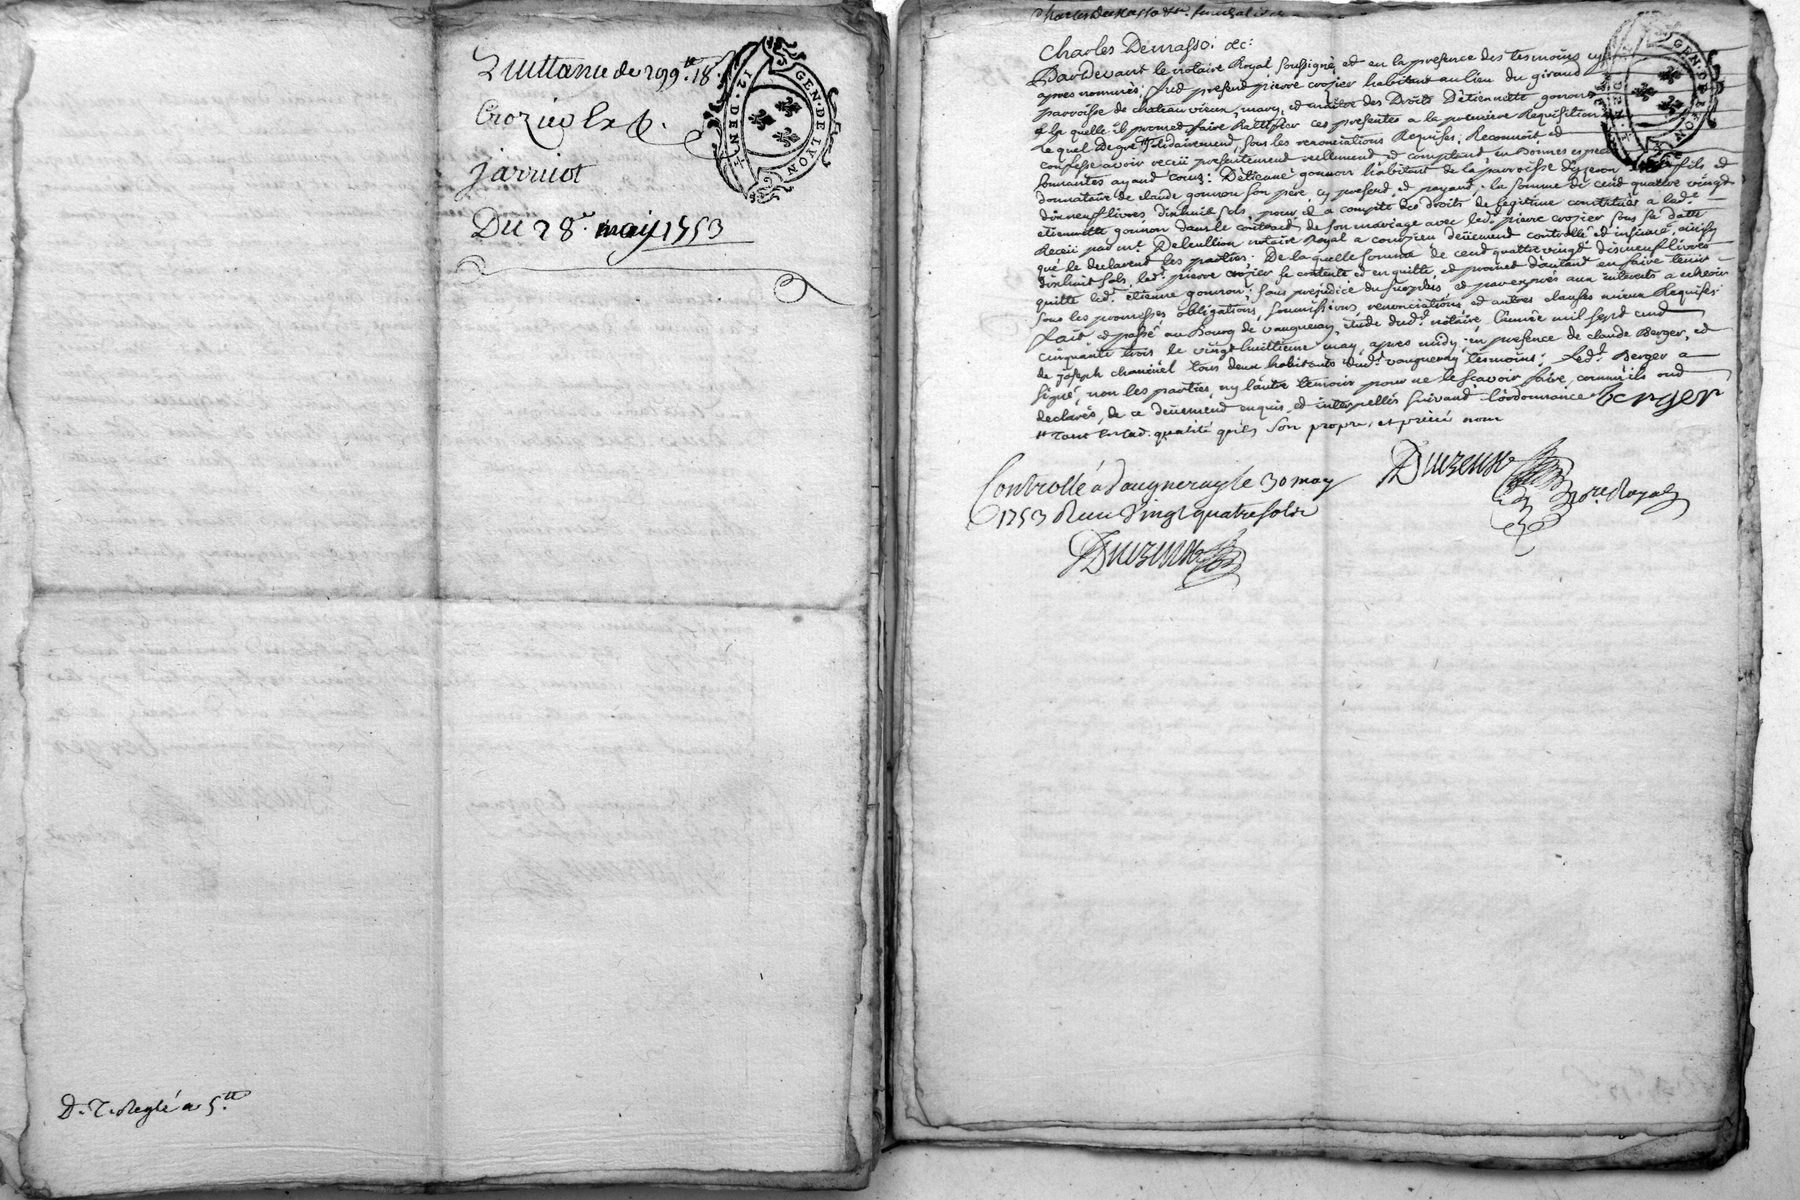 Quittance de 299.tt 18.s
Crozier
jarricot
Du 28.e may 1753
GEN. DE LYON
12. DEN.
D. T. Reglé a 5.tt
Charles Demasso. &c:
Pardevant le notaire Royal soussigné et en la presence des tesmoins cy
apres nommés; fut present pierre crozier habitant au lieu du giraud
parroisse de chateauvieux, mary, et maitre des Droits D'etiennette gonnon
a la quelle il promet faire Ratiffier ces presentes a la premiere Requisition
le quel De gré solidairement, sous les renonciations Requises, Reconnoit et
confesse avoir receu presentement reellement et comptant en bonnes especes
sonnantes ayant cours: D'etienne gonnon habitant de la parroisse d'yzeron fils et
donnataire de claude gonnon son pere, cy present et payant. la somme de cent quatre vingt
dixneuf livres, dixhuit sols, pour et a compte des droits de legitime constitués a lad.e
etiennette gonnon dans le contract de son mariage avec led.t pierre crozier sous sa datte
Receu par m.e Deleullion notaire Royal a courzieu deüement controllé et insinué, ainsy
que le declarent les parties. De laquelle somme de cent quatre vingt dixneuf livres
dixhuit sols, led.t pierre crozier se contente et en quitte, et promet d'autant en faire tenir
quitte led.t etienne gonnon; sans prejudice du surplus et par exprés aux interets a echeoir
sous les promesses obligations, soumissions, renonciations et autres clauses mieux Requises.
fait et passé au Bourg de vaugneray, etude dud.t notaire, l'année mil sept cent
cinquante trois le vingt huittieme may, apres midy, en presence de claude Berger, et
de joseph chanuël tous deux habitants dud.t vaugneray tesmoins: Led.t Berger a
signé, non les parties, ny l'autre temoin pour ne le scavoir faire, comm'ils ont
declarés, de ce deüement enquis, et interpellés suivant l'ordonnance. Berger
# tant en lad. qualité qu'en son propre, et privé nom
Controllé a Vaugneray le 30 may
1753 Reçu Vingt quatre sols
n.re Royal